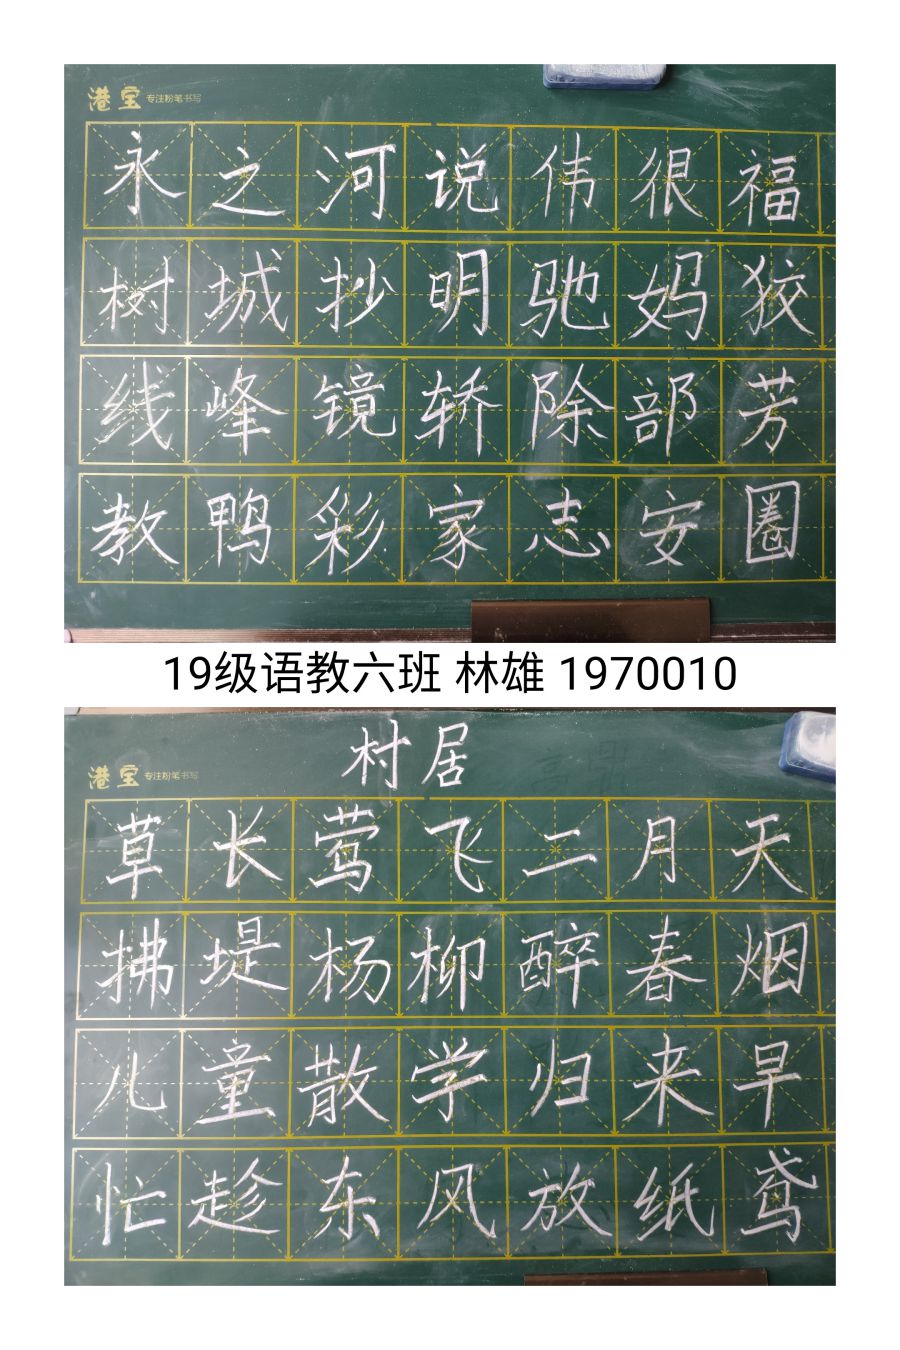 港宝 专注粉笔书写
永之河说伟很福
树城抄明驰妈狡
线峰镜轿除部芳
教鸭彩家志安圈
19级语教六班 林雄 1970010
村居
港宝 专注粉笔书写
草长莺飞二月天
拂堤杨柳醉春烟
儿童散学归来早
忙趁东风放纸鸢